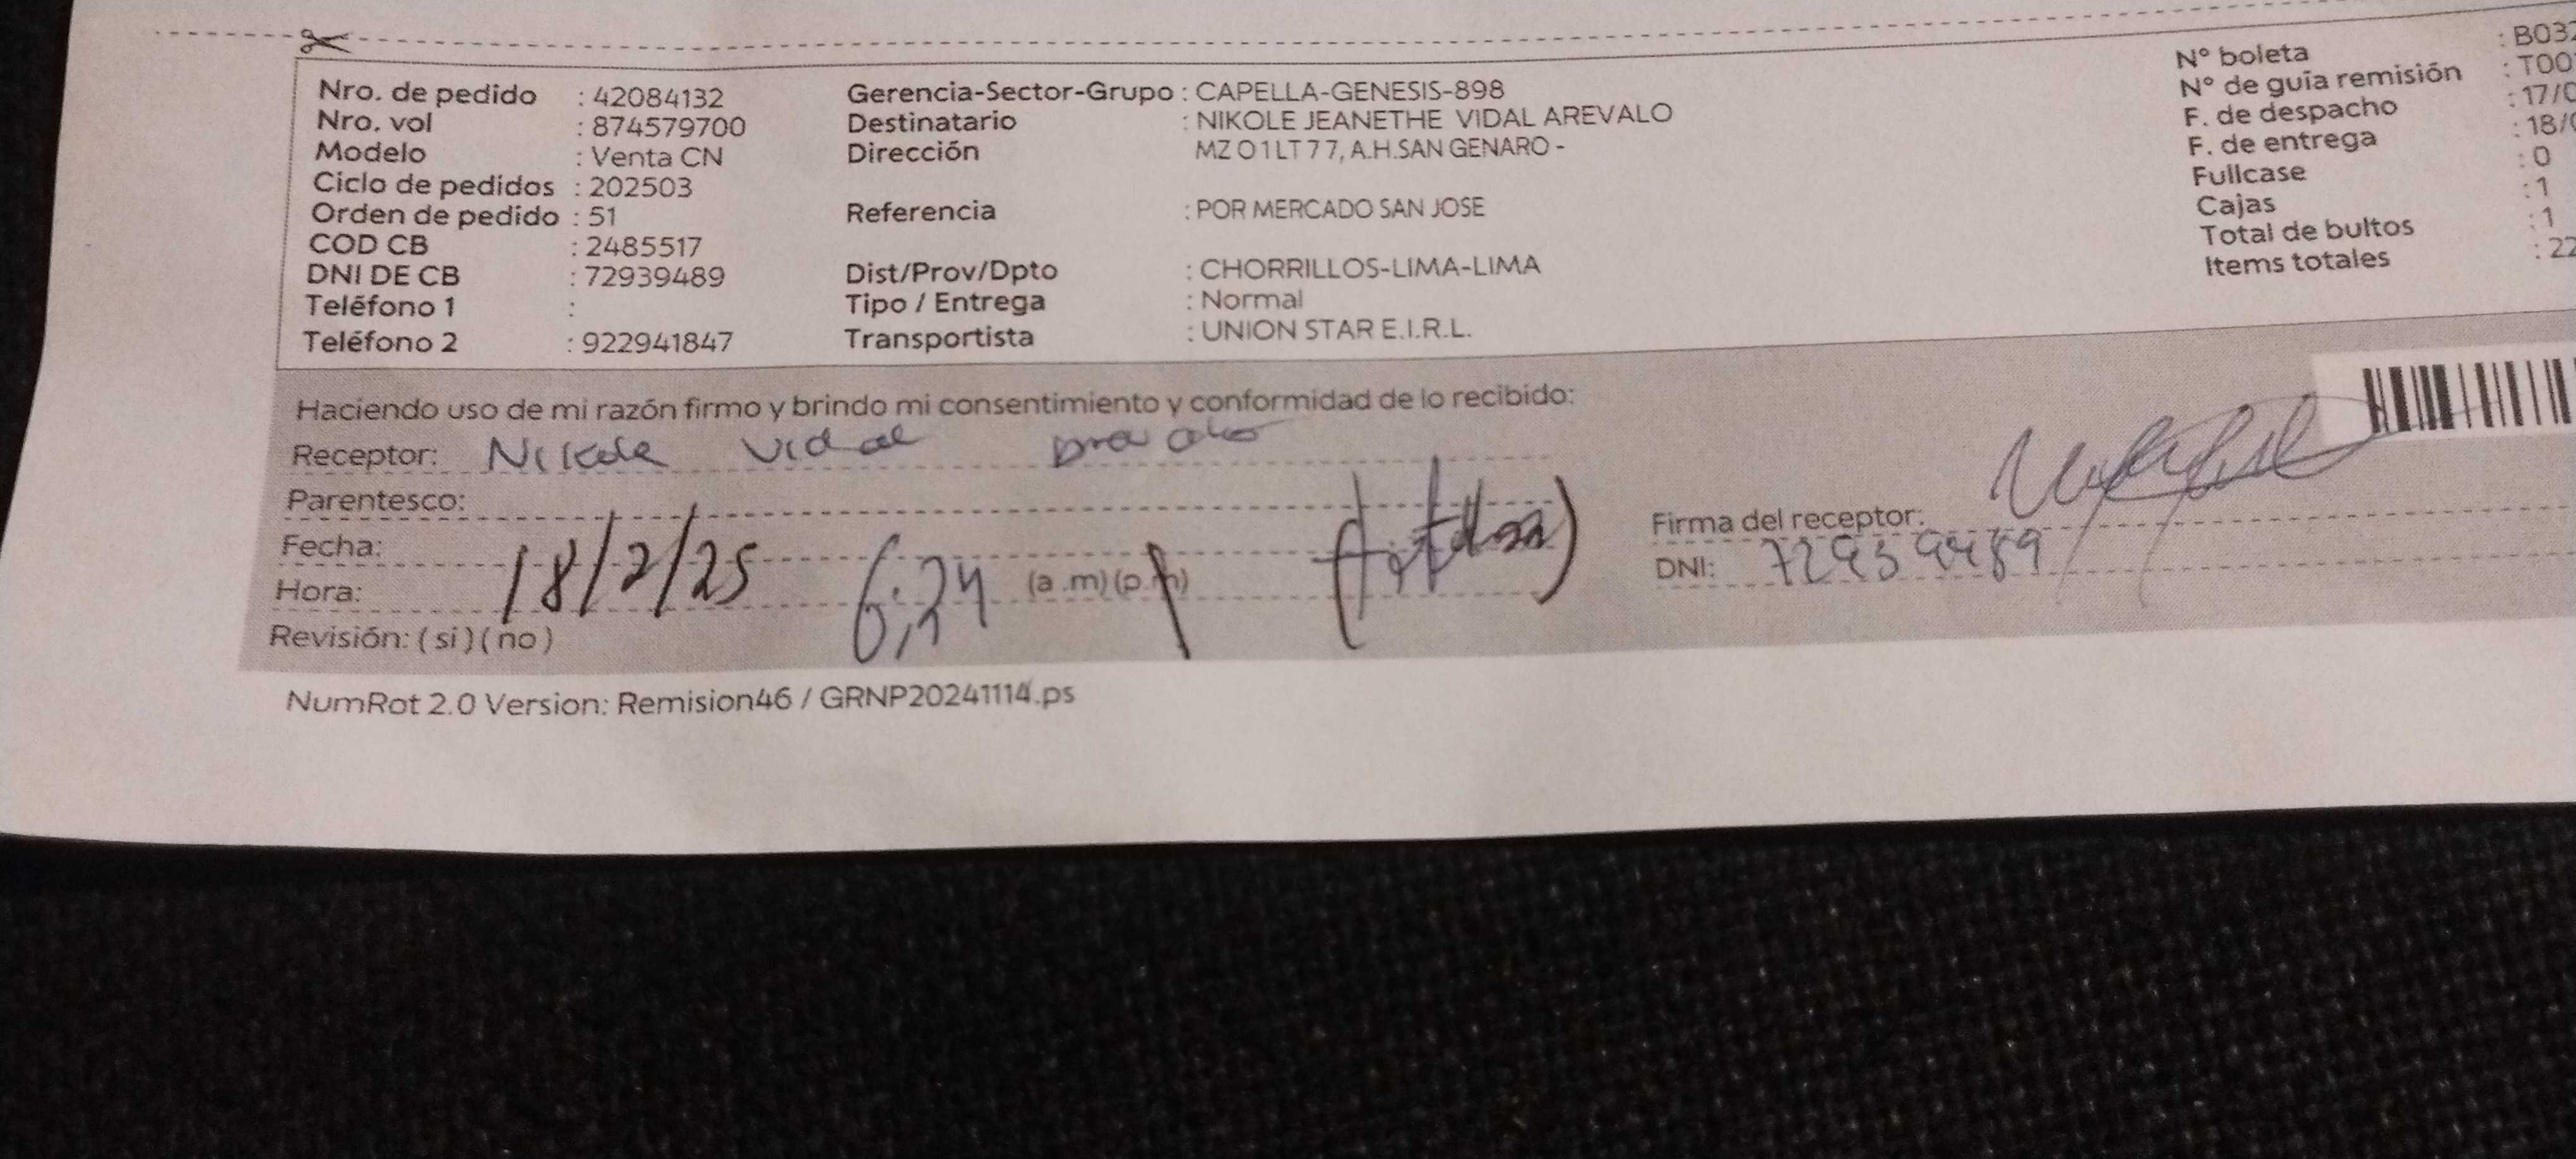 Nro. de pedido : 42084132
Nro. vol : 874579700
Modelo : Venta CN
Ciclo de pedidos : 202503
Orden de pedido : 51
COD CB : 2485517
DNI DE CB : 72939489
Teléfono 1 :
Teléfono 2 : 922941847
Gerencia-Sector-Grupo : CAPELLA-GENESIS-898
Destinatario : NIKOLE JEANETHE VIDAL AREVALO
Dirección MZ O 1 LT 7 7, A.H.SAN GENARO -
Referencia : POR MERCADO SAN JOSE
Dist/Prov/Dpto : CHORRILLOS-LIMA-LIMA
Tipo / Entrega : Normal
Transportista : UNION STAR E.I.R.L.
N° boleta : B032
N° de guía remisión : T00
F. de despacho : 17/0
F. de entrega : 18/
Fullcase : 0
Cajas : 1
Total de bultos : 1
Items totales : 22
Haciendo uso de mi razón firmo y brindo mi consentimiento y conformidad de lo recibido:
Receptor: Nikole Vidal
Parentesco:
Fecha: 18/2/25
Hora: 6:24 (a .m) (p.m)
Revisión: ( si ) ( no )
Firma del receptor:
DNI: 72939489
NumRot 2.0 Version: Remision46 / GRNP20241114.ps